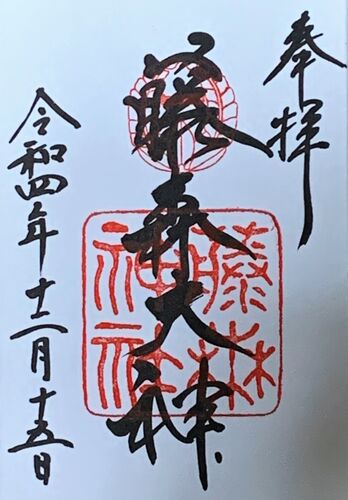 奉拝
藤森大神
藤森
神社
令和四年十二月十五日